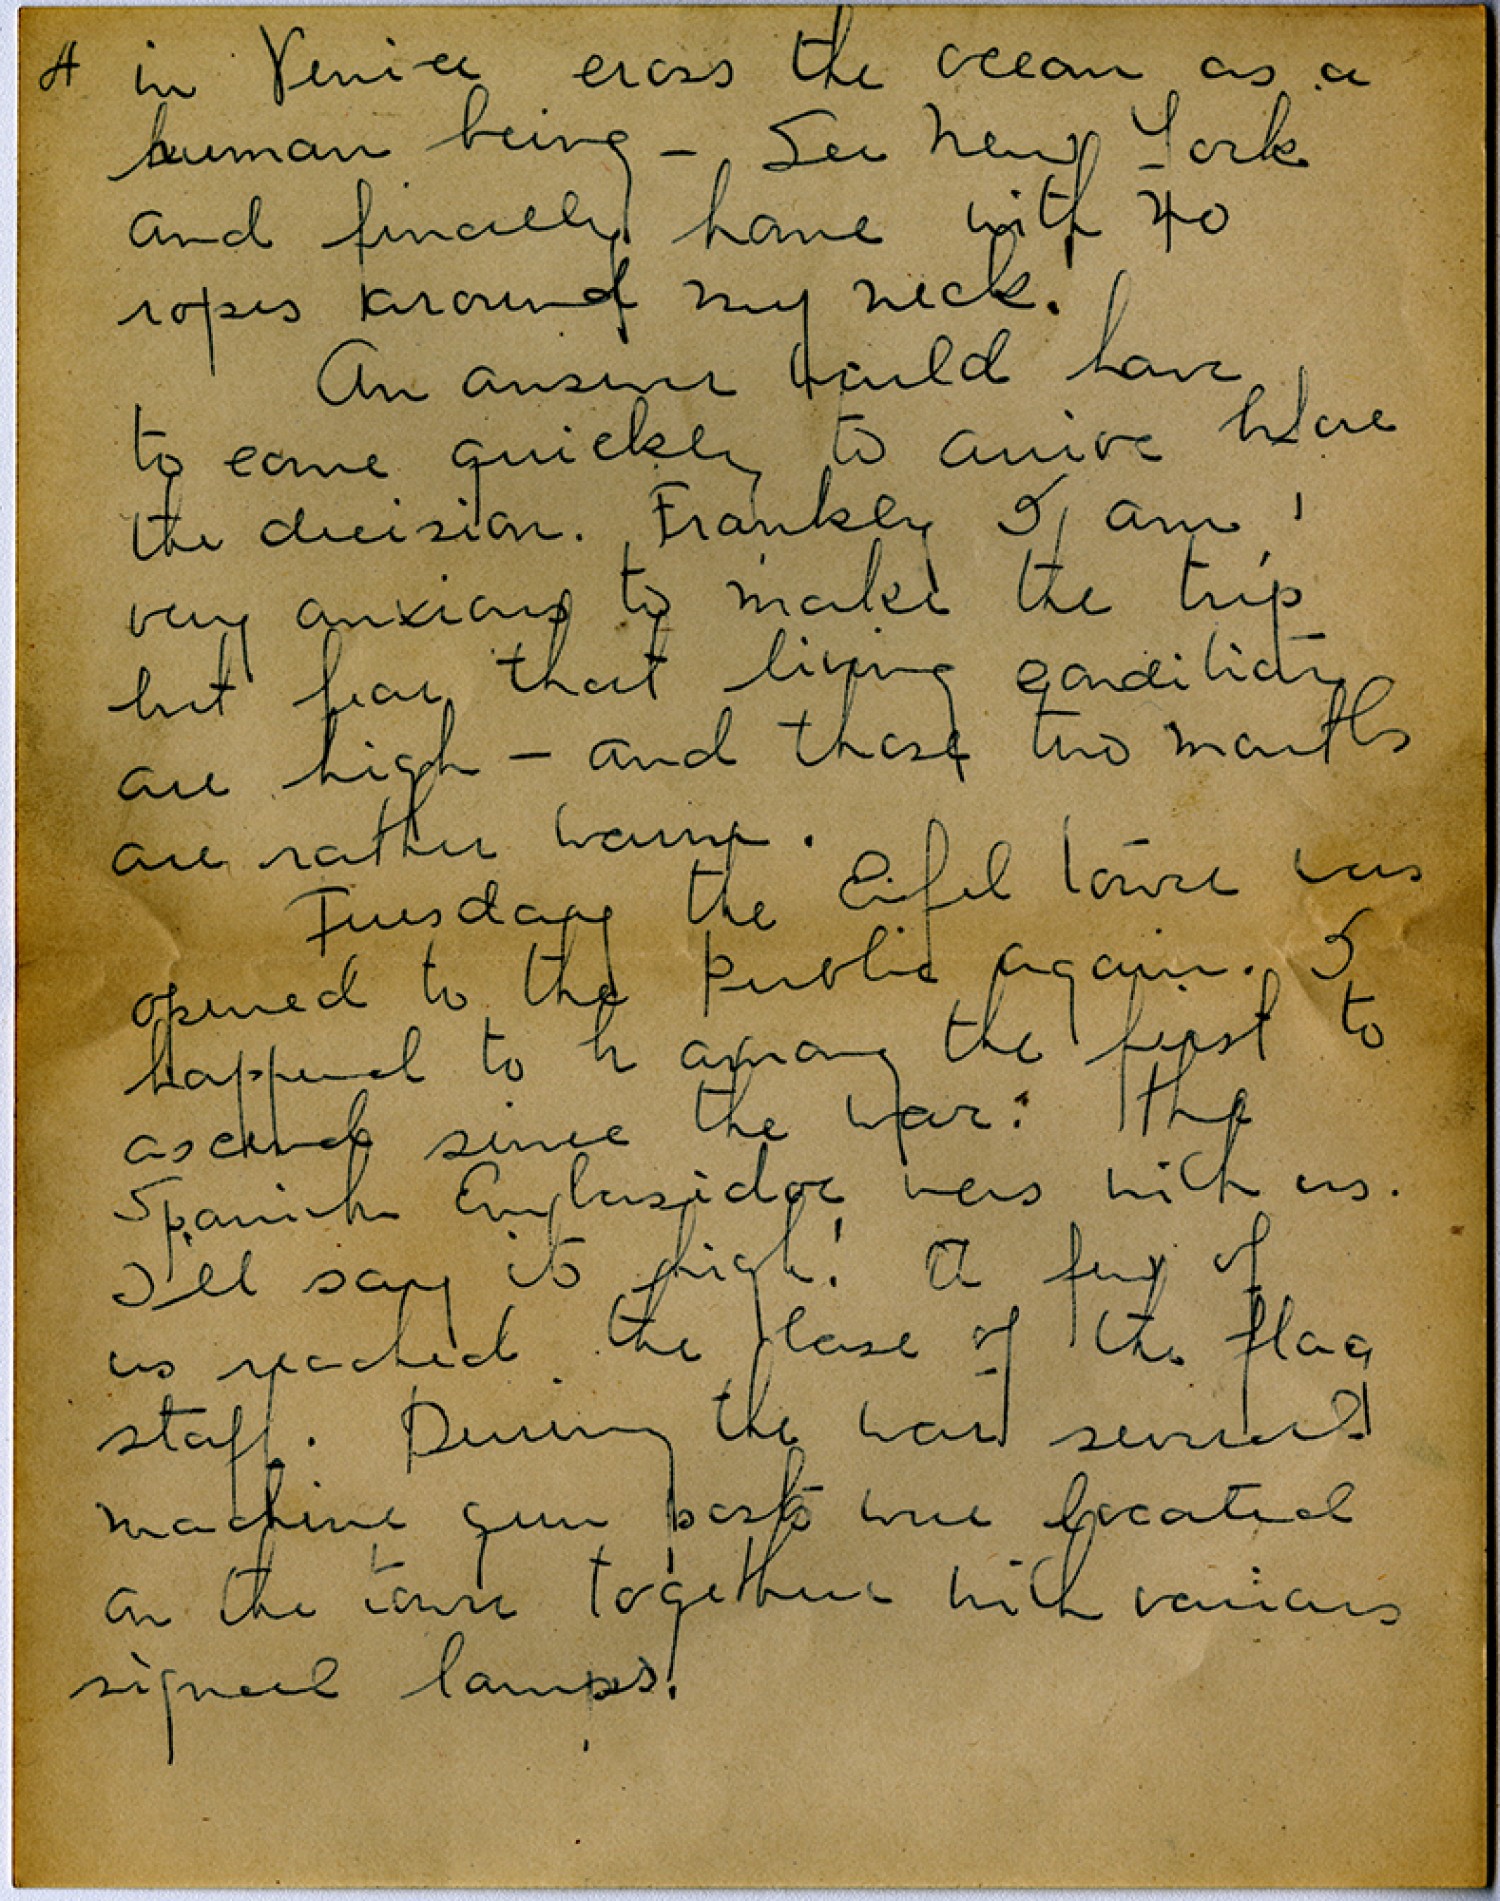 4 in Venice cross the ocean as a
human being - See New York
and finally home with 40
ropes around my neck.
An answer would have
to come quickly to arrive before
the decision. Frankly I am
very anxious to make the trip
but fear that living conditions
are high - and those two months
are rather warm.
Tuesday the Eifel tower was
opened to the public again. I
happened to be among the first to
ascend since the war. The
Spanish Embasidor was with us.
I'll say its high! A few of
us reached the base of the flag
staff. During the war several
machine gun posts were located
on the tower together with various
signal lamps.